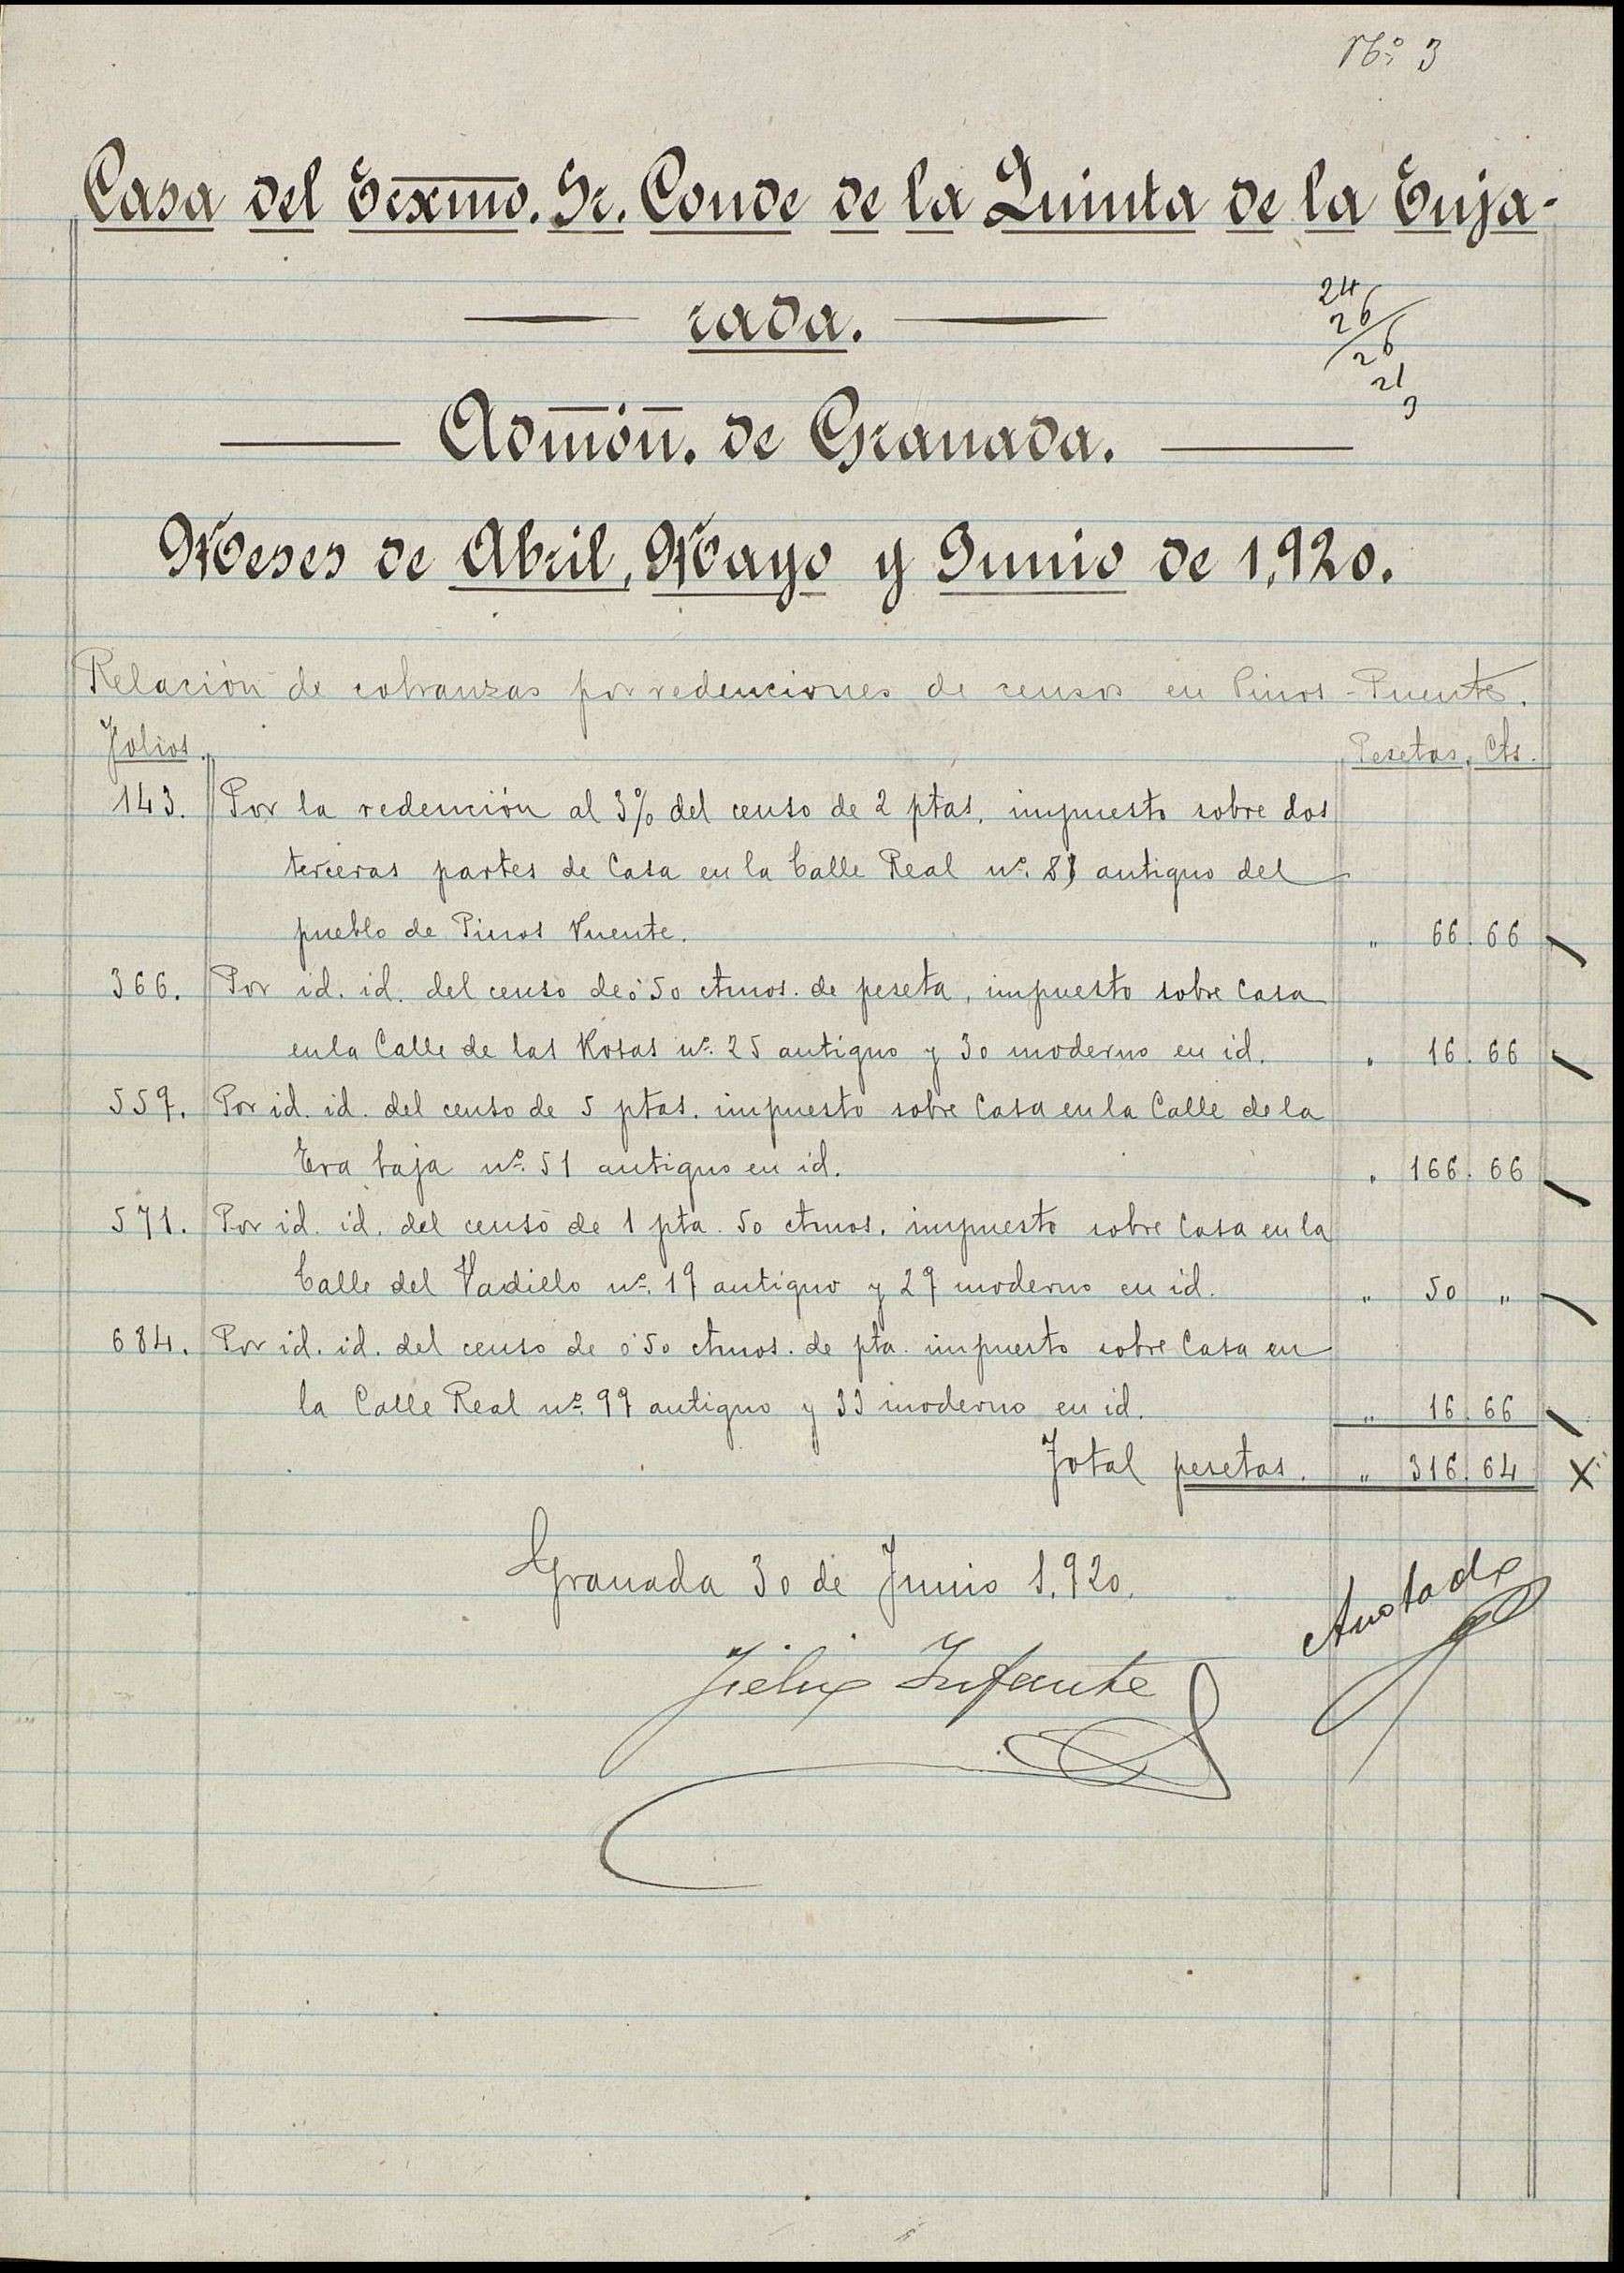 Nº 3
Casa del Ecxmo. Sr. Conde de la Quinta de la Enja-
rada.
24
26
26
21
3
Admón. de Granada.
Meses de Abril, Mayo y Junio de 1,920.
Relación de cobranzas por redenciones de censos en Pinos-Puente.
Folios Pesetas, Cts.
143. Por la redención al 3% del censo de 2 ptas, impuesto sobre dos
terceras partes de Casa en la Calle Real nº. antiguo del
pueblo de Pinos Puente. " 66. 66
366. Por id. id. del censo de 0'50 ctmos. de peseta, impuesto sobre Casa
en la Calle de las Rosas nº. 25 antiguo y 30 moderno en id. " 16. 66
559. Por id. id. del censo de 5 ptas. impuesto sobre Casa en la Calle de la
Era baja nº. 51 antiguo en id. " 166. 66
571. Por id. id. del censo de 1 pta. 50 ctmos. impuesto sobre Casa en la
Calle del Vadillo nº. 19 antiguo y 29 moderno en id. " 50 "
684. Por id. id. del censo de 0'50 ctmos. de pta. impuesto sobre Casa en
la Calle Real nº. 99 antiguo y 33 moderno en id. " 16. 66
Total pesetas. " 316. 64 X
Granada 30 de Junio 1,920.
Anotado
Félix Infante